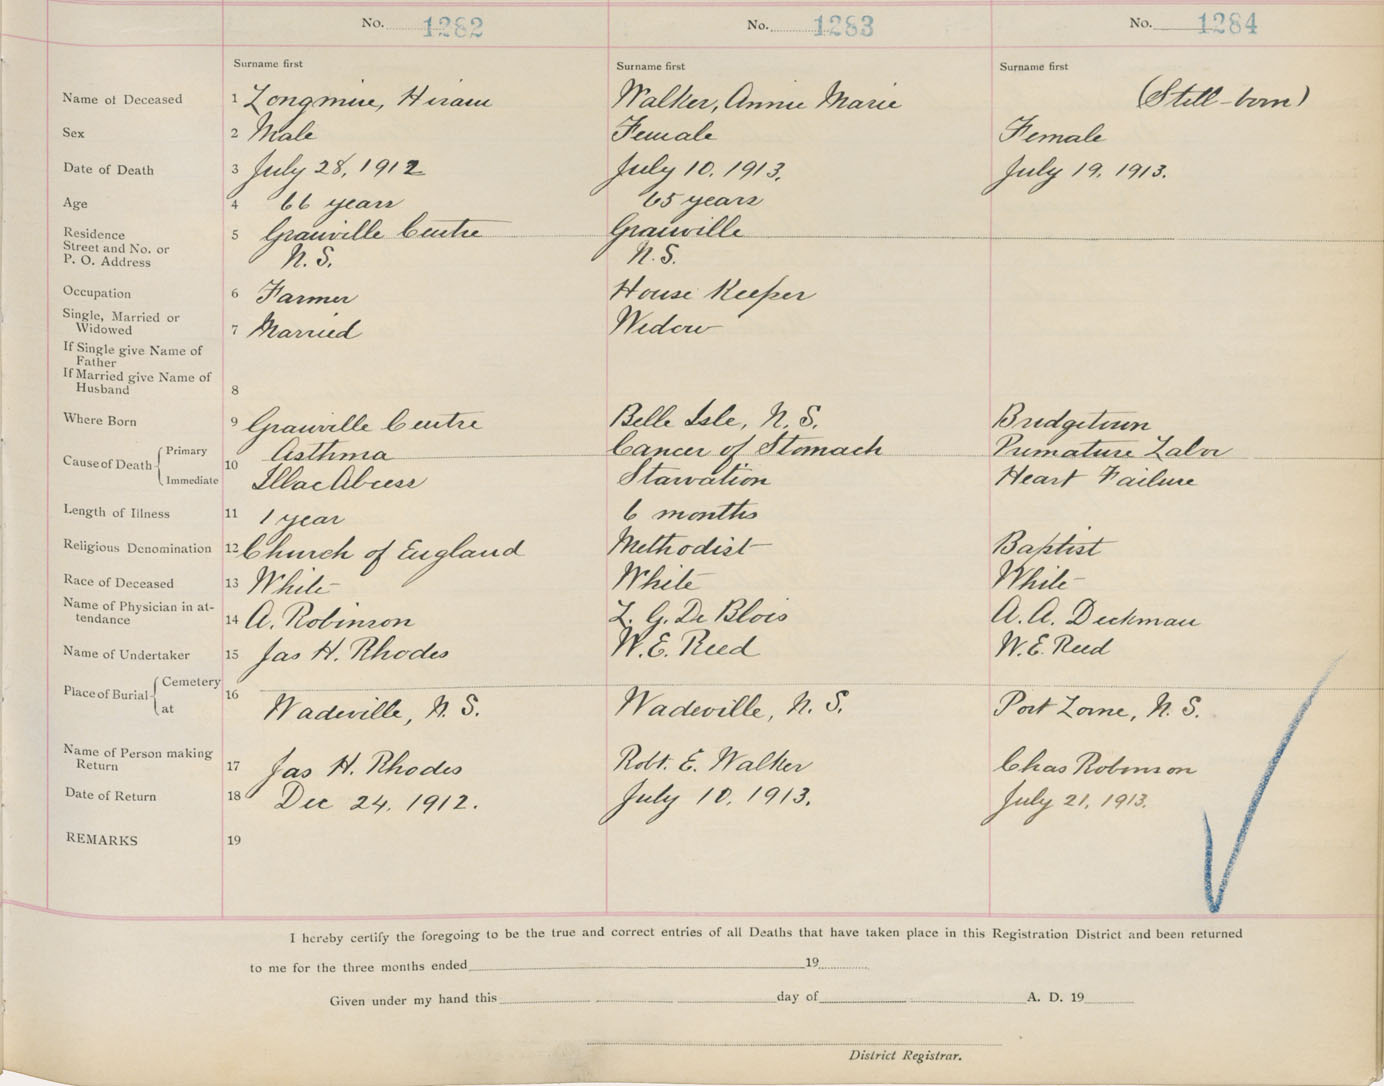 No. 1282 No. 1283 No. 1284
Surname first Surname first Surname first
Name of Deceased 1 Longmire, Hiram Walker, Annie Marie (Still-born)
Sex 2 Male Female Female
Date of Death 3 July 28, 1912 July 10, 1913. July 19, 1913.
Age 4 66 years 65 years
Residence 5 Granville Centre Granville
Street and No. or
P. O. Address N. S. N. S.
Occupation 6 Farmer House Keeper
Single, Married or
Widowed 7 Married Widow
If Single give Name of
Father
If Married give Name of
Husband 8
Where Born 9 Granville Centre Belle Isle, N. S. Bridgetown
Cause of Death 10 Primary Asthma Cancer of Stomach Premature Labor
Immediate Illac Abcess Starvation Heart Failure
Length of Illness 11 1 year 6 months
Religious Denomination 12 Church of England Methodist Baptist
Race of Deceased 13 White White White
Name of Physician in at-
tendance 14 A. Robinson L. G. De Blois A. A. Deckman
Name of Undertaker 15 Jas H. Rhodes W. E. Reed W. E. Reed
Place of Burial 16 Cemetery
at Wadeville, N. S. Wadeville, N. S. Port Lorne, N. S.
Name of Person making
Return 17 Jas H. Rhodes Robt. E. Walker Chas Robinson
Date of Return 18 Dec 24, 1912. July 10, 1913. July 21, 1913.
REMARKS 19
I hereby certify the foregoing to be the true and correct entries of all Deaths that have taken place in this Registration District and been returned
to me for the three months ended 19
Given under my hand this day of A. D. 19
District Registrar.